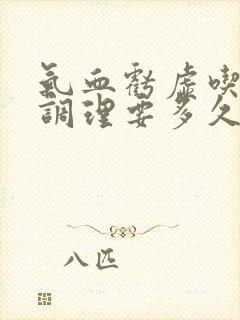 氣血虧虛喫
調理要多久
八匹